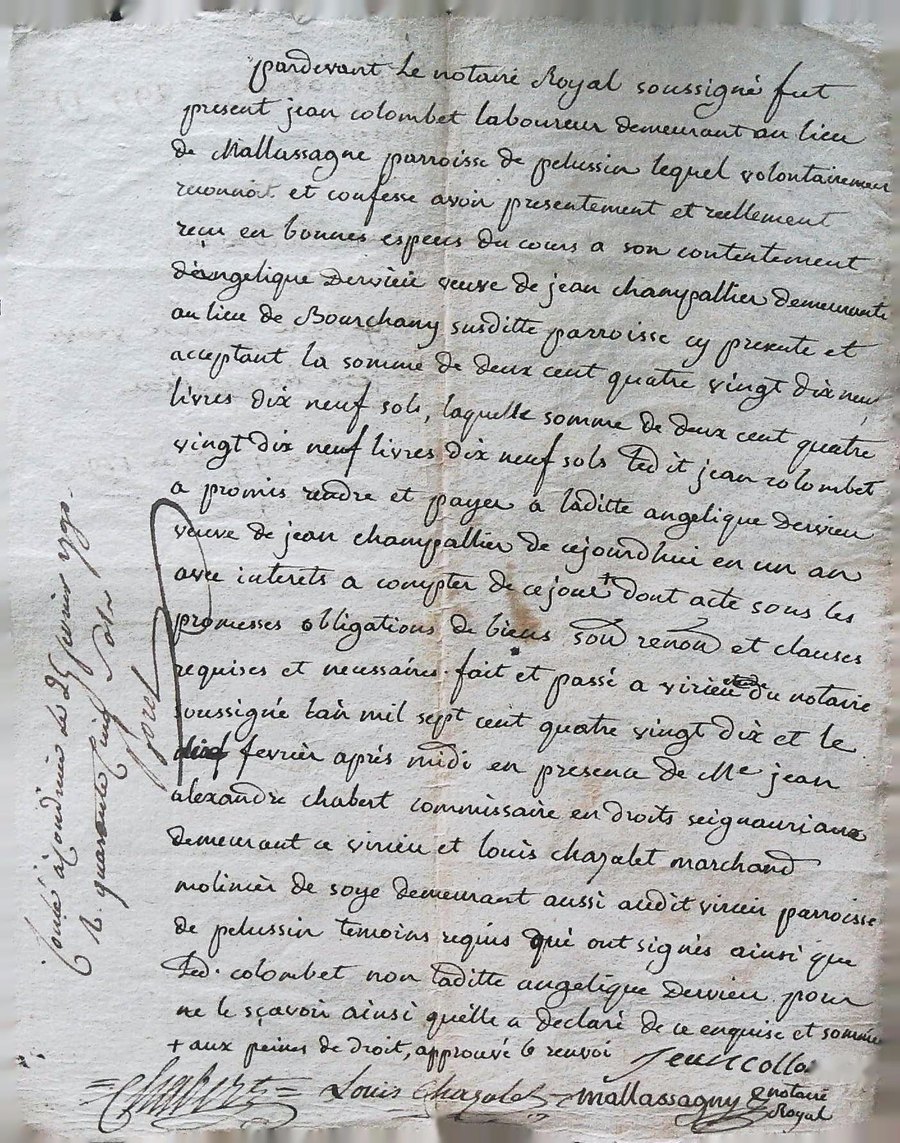 pardevant Le notaire Royal soussigné fut
present jean colombet laboureur demeurant au lieu
de Mallassagne parroisse de pelussin lequel volontairement
reconnoit et confesse avoir presentement et reellement
recu en bonnes especes du cours a son contentement
d'angelique Dervieu veuve de jean champallier demeurante
au lieu de Bourchany susditte parroisse cy presente et
acceptant la somme de deux cent quatre vingt dix neuf
livres dix neuf sols, laquelle somme de deux cent quatre
vingt dix neuf livres dix neuf sols Ledit jean colombet
a promis rendre et payer a laditte angelique Dervieu
veuve de jean champallier de cejourdhui en un an
avec interets a compter de cejour + dont acte sous les
promesses obligations de biens soud renon et clauses
requises et necessaires. fait et passé a virieu etude du notaire
soussigné L'an mil sept cent quatre vingt dix et le
fevrier après midi en presence de Me jean
alexandre chabert commissaire en droits seignauriaux
demeurant a virieu et louis chazalet marchand
molinier de soye demeurant aussi audit virieu parroisse
de pelussin temoins requis qui ont signés ainsi que
Led. colombet non laditte angelique Dervieu pour
ne le sçavoir ainsi quelle a declaré de ce enquise et sommée
+ aux peines de droit, approuvé le renvoi
jean collo
Chabert Louis Chazalet mallassagny notaire
Royal
le 25 1790.
R. quarante cinq sols